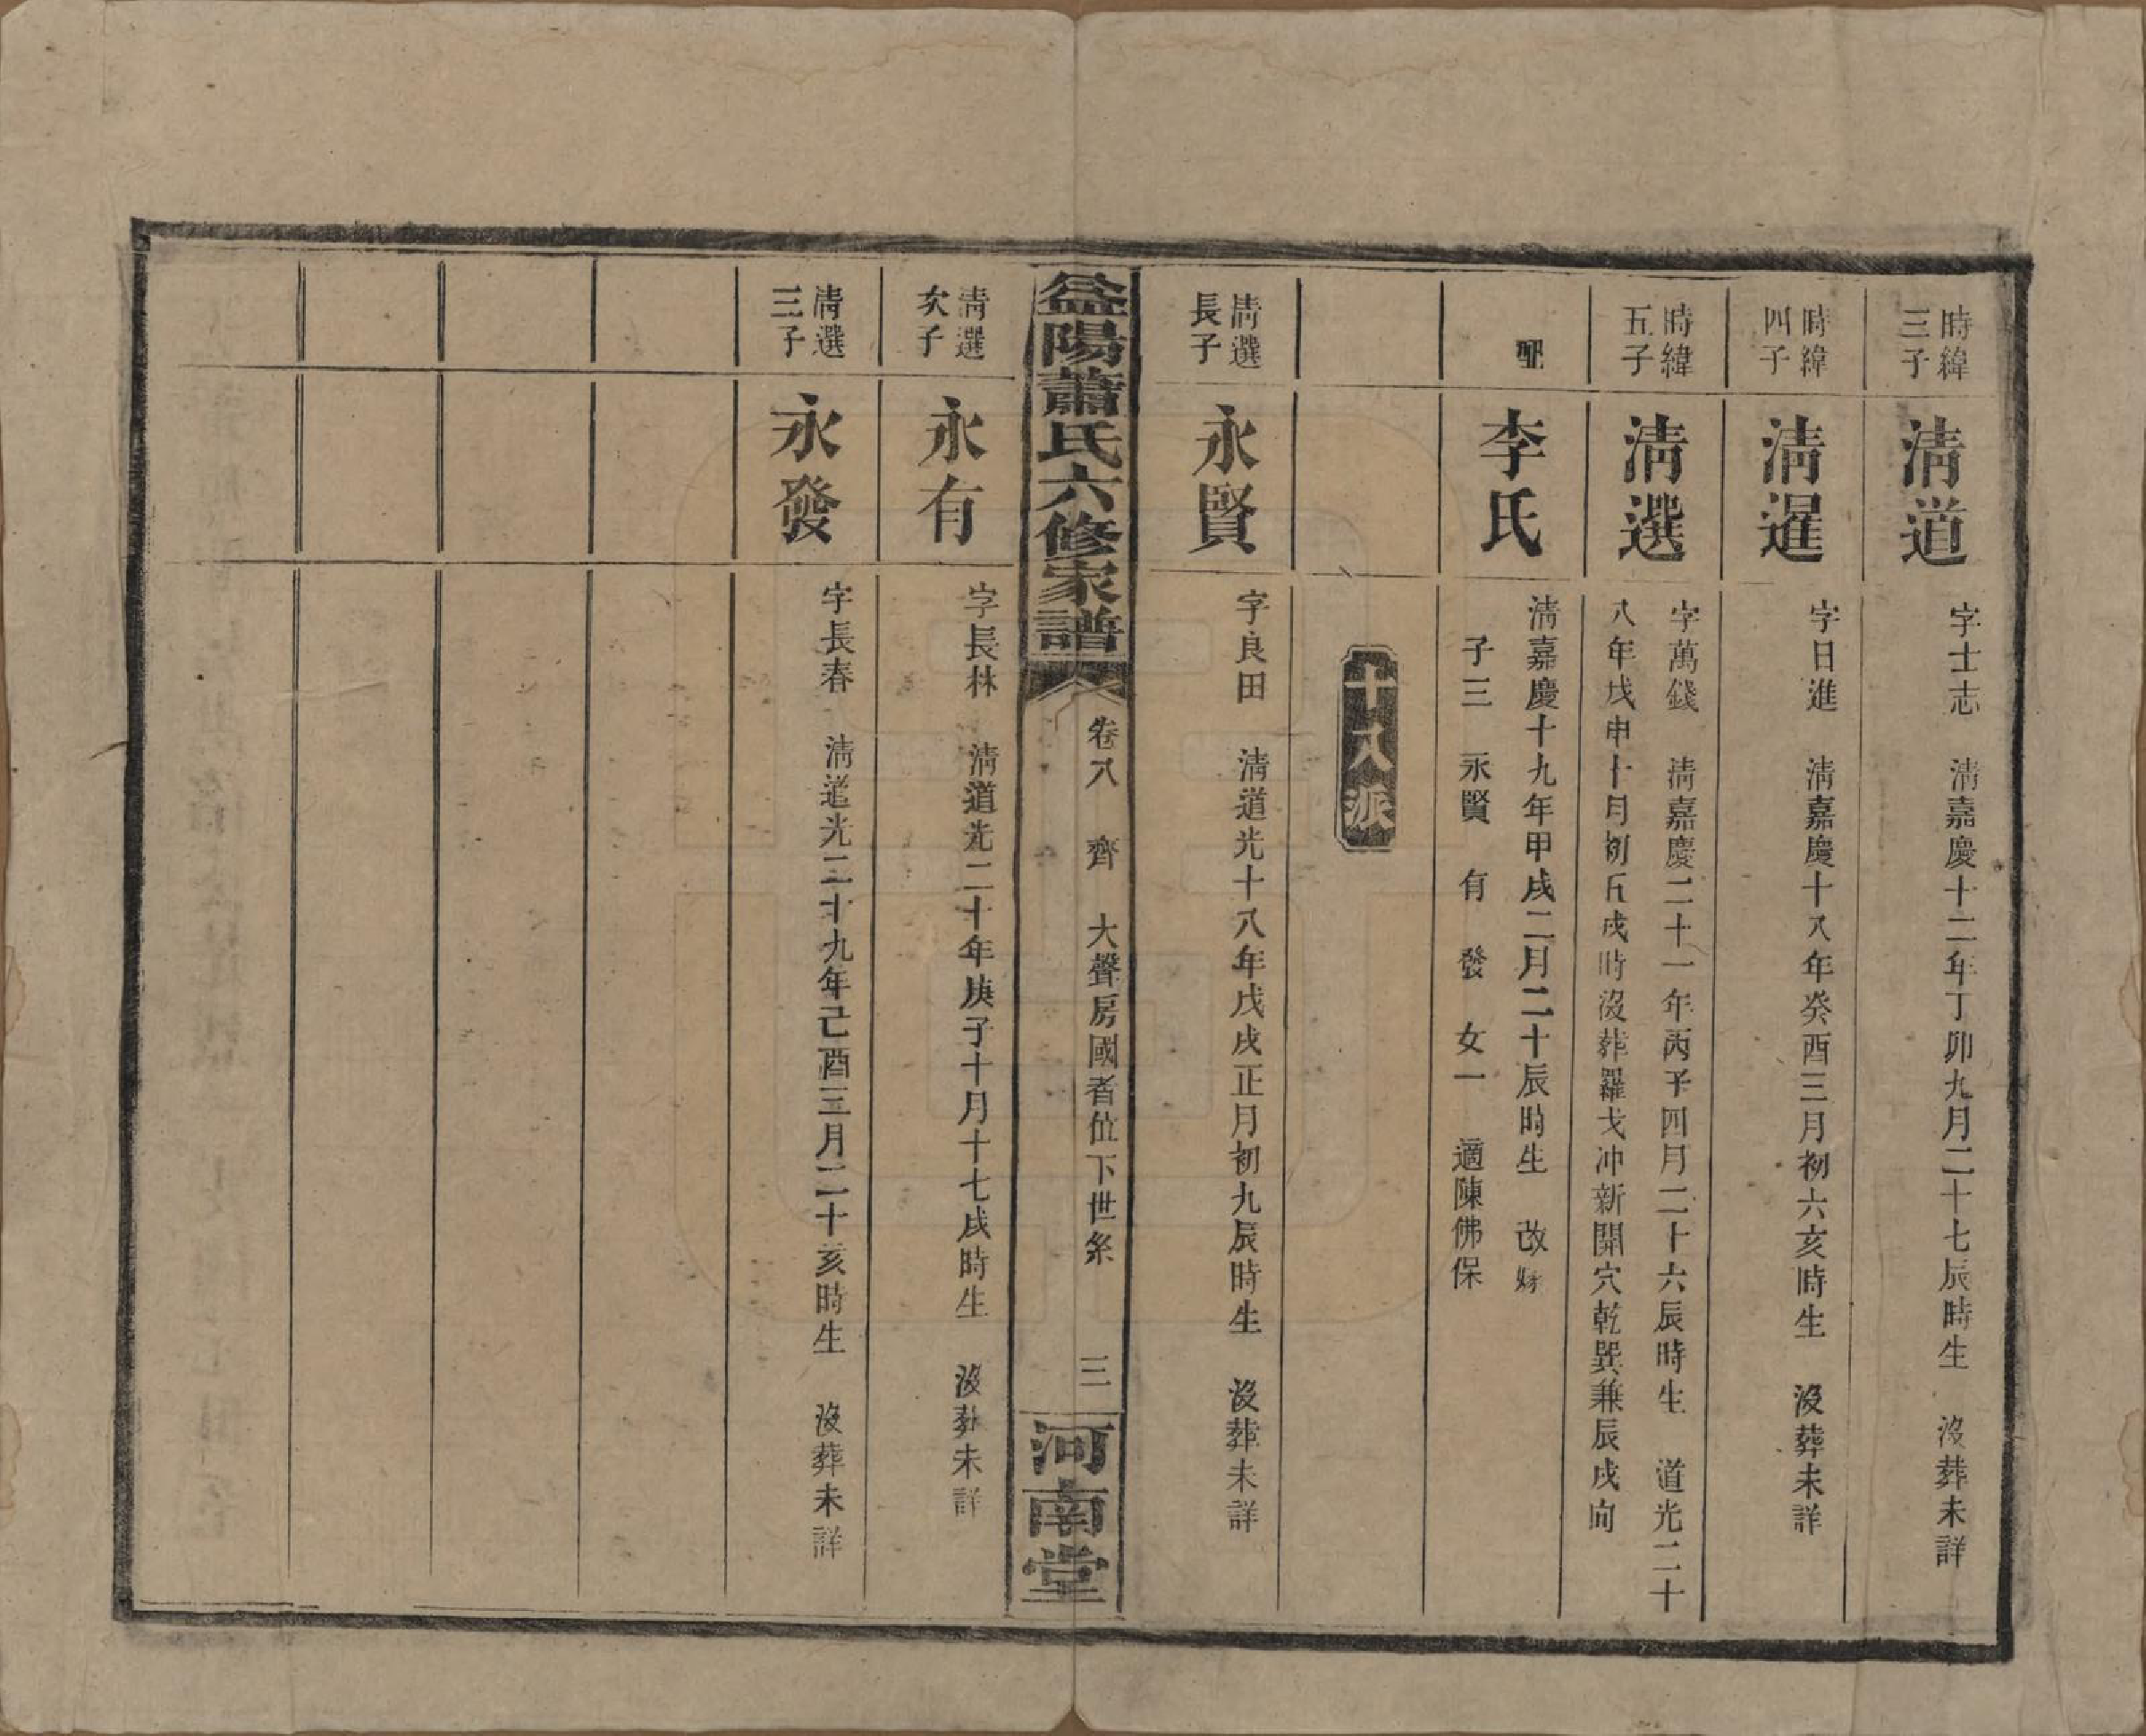 時緯
三子
清道
字士志　清嘉慶十二年丁卯九月二十七辰時生　沒葬未詳
時緯
四子
清暹
字日進　清嘉慶十八年癸酉三月初六亥時生　沒葬未詳
時緯
五子
清選
字萬錢　清嘉慶二十一年丙子四月二十六辰時生　道光二十
八年戊申十月初五戌時沒葬羅戈冲新開穴乾巽兼辰戌向
配
李氏
清嘉慶十九年甲戌二月二十辰時生　改嫁
子三　永賢　有　發　女一　適陳佛保
十八派
清選
長子
永賢
字良田　清道光十八年戊戌正月初九辰時生　沒葬未詳
益陽蕭氏六修家譜
卷八　齊　大聲房國者位下世系　三
河南堂
清選
次子
永有
字長林　清道光二十年庚子十月十七戌時生　沒葬未詳
清選
三子
永發
字長春　清道光二十九年己酉三月二十亥時生　沒葬未詳